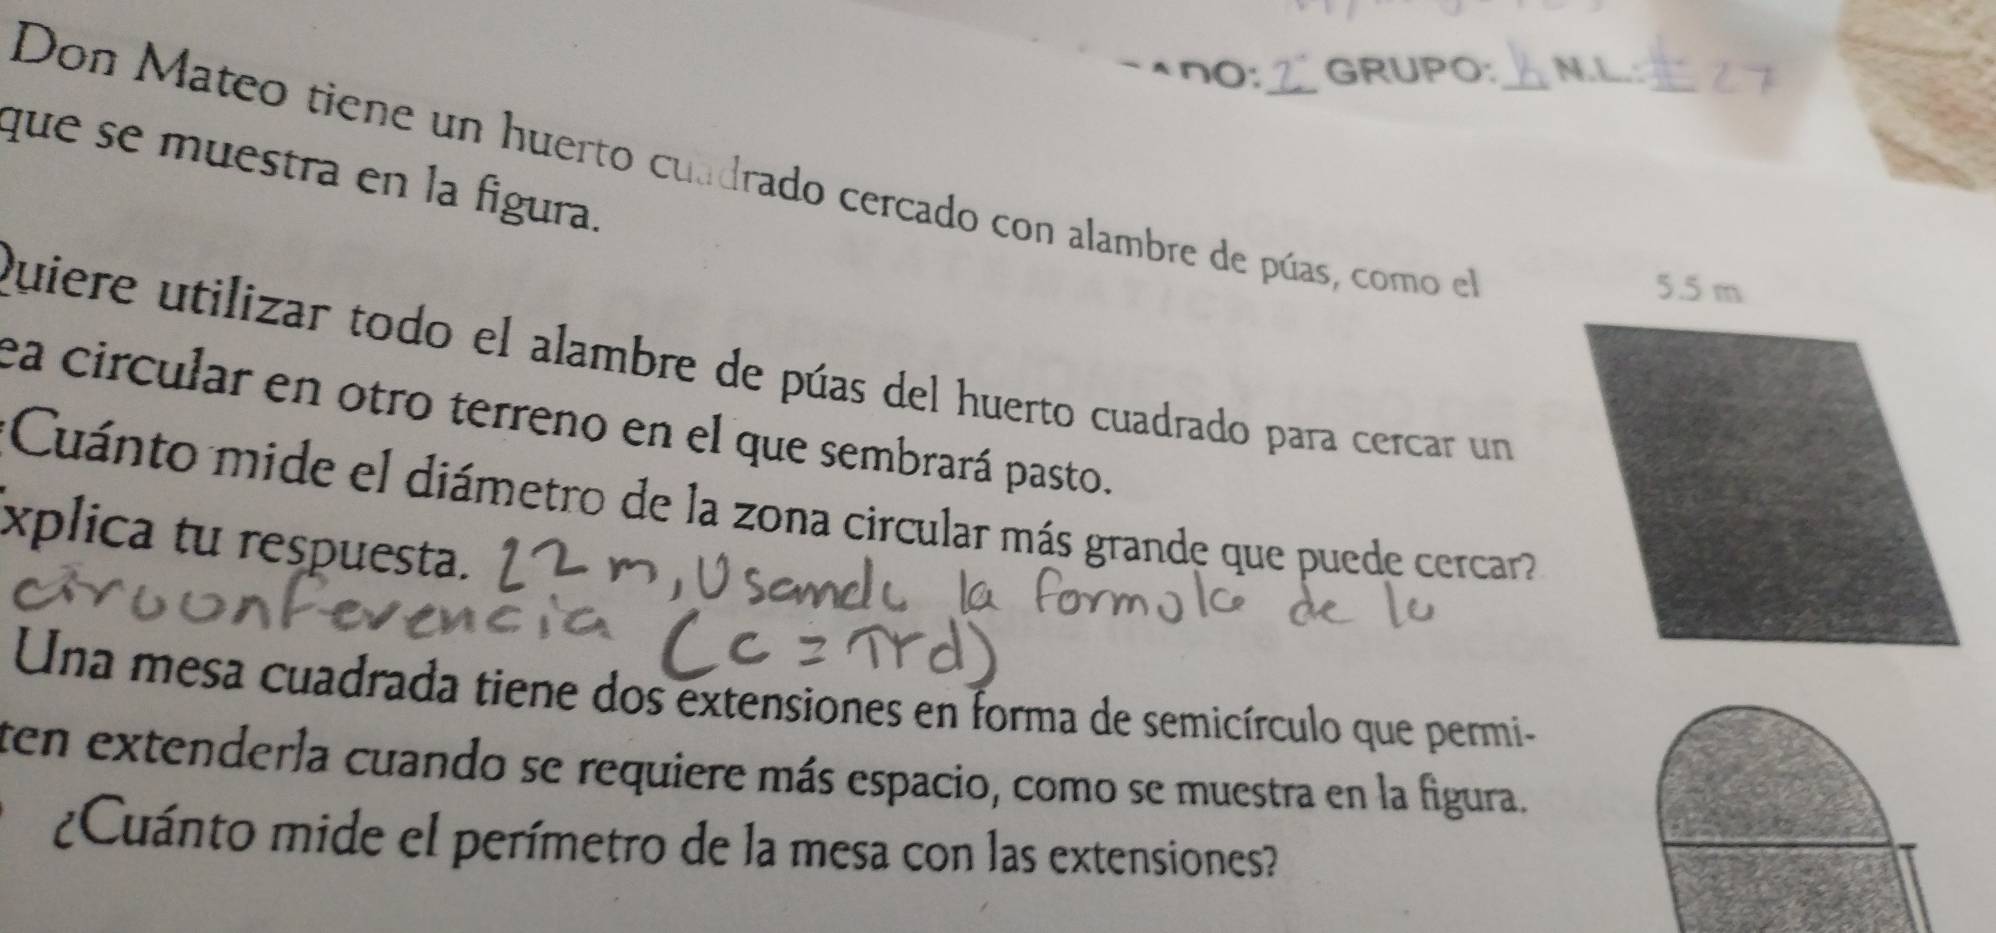 GRUPO: N.L.: 27
Don Mateo tiene un huerto cuadrado cercado con alambre de púas, como el
que se muestra en la figura.
5.5 m
Quiere utilizar todo el alambre de púas del huerto cuadrado para cercar un
ea circular en otro terreno en el que sembrará pasto.
¿Cuánto mide el diámetro de la zona circular más grande que puede cercar?
Explica tu respuesta. 22 m, Usando la formula de la
circonferencia (c = πrd)
Una mesa cuadrada tiene dos extensiones en forma de semicírculo que permi-
ten extenderla cuando se requiere más espacio, como se muestra en la figura.
¿Cuánto mide el perímetro de la mesa con las extensiones?